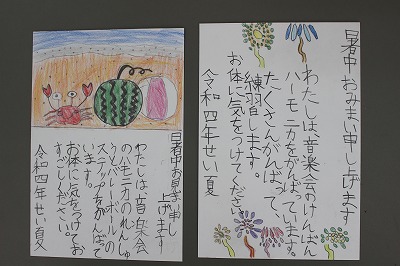 暑中お見まい申し
上げます
わたしは、音楽会
のハーモニカのれんしゅ
うと、バレーボールの
ステップをがんばって
います。
お体に気をつけてお
すごしください。
令和四年せい夏
暑中おみまい申し上げます
わたしは、音楽会のけんばん
ハーモニカをがんばっています。
たくさんがんばって、
練習します。
お体に気をつけてください。
令和四年せい夏